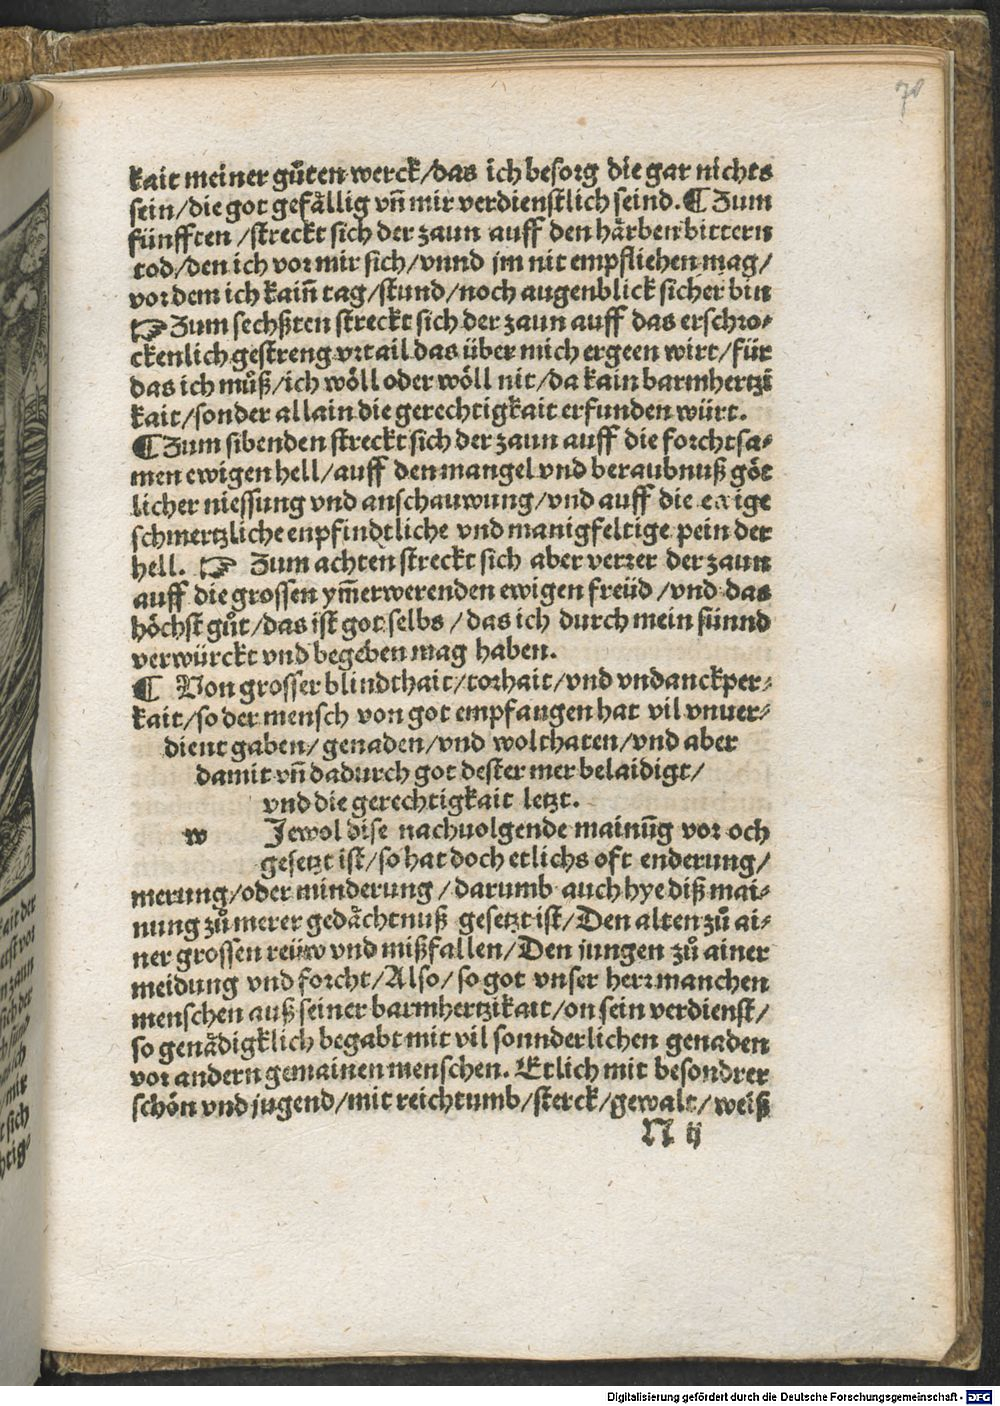 70
kait meiner gůten werck/das ich besorg die gar nichts
sein/die got gefållig vñ mir verdienstlich seind. ¶ Zum
fünfften/streckt sich der zaun auff den hårben bittern
tod/den ich vor mir sich/vnnd jm nit empfliehen mag/
vor dem ich kaiñ tag/stund/noch augenblick sicher bin
☞ Zum sechßten streckt sich der zaun auff das erschro-
ckenlich gestreng vrtail das über mich ergeen wirt/für
das ich můß/ich wöll oder wöll nit/da kain barmhertzi
kait/sonder allain die gerechtigkait erfunden würt.
¶ Zum sibenden streckt sich der zaun auff die forchtsa-
men ewigen hell/auff den mangel vnd beraubnuß göt
licher niessung vnd anschauwung/vnd auff die ewige
schmertzliche enpfindtliche vnd manigfeltige pein der
hell. ☞ Zum achten streckt sich aber verrer der zaun
auff die grossen ym̃erwerenden ewigen freüd/vnd das
höchst gůt/das ist got selbs/das ich durch mein sünnd
verwürckt vnd begeben mag haben.
¶ Von grosser blindthait/torhait/vnd vndanckper-
kait/so der mensch von got empfangen hat vil vnuer-
dient gaben/genaden/vnd wolthaten/vnd aber
damit vñ dadurch got dester mer belaidigt/
vnd die gerechtigkait letzt.
w Jewol dise nachuolgende mainũg vor och
gesetzt ist/so hat doch etlichs oft enderung/
merung/oder minderung/darumb auch hye diß mai-
nung zů merer gedåchtnuß gesetzt ist/Den alten zů ai-
ner grossen reüw vnd mißfallen/Den jungen zů ainer
meidung vnd forcht/Also/so got vnser herr manchen
menschen auß seiner barmhertzikait/on sein verdienst/
so genådigklich begabt mit vil sonnderlichen genaden
vor andern gemainen menschen. Etlich mit besondrer
schön vnd jugend/mit reichtumb/sterck/gewalt/weiß
N ij
Digitalisierung gefördert durch die Deutsche Forschungsgemeinschaft - DFG